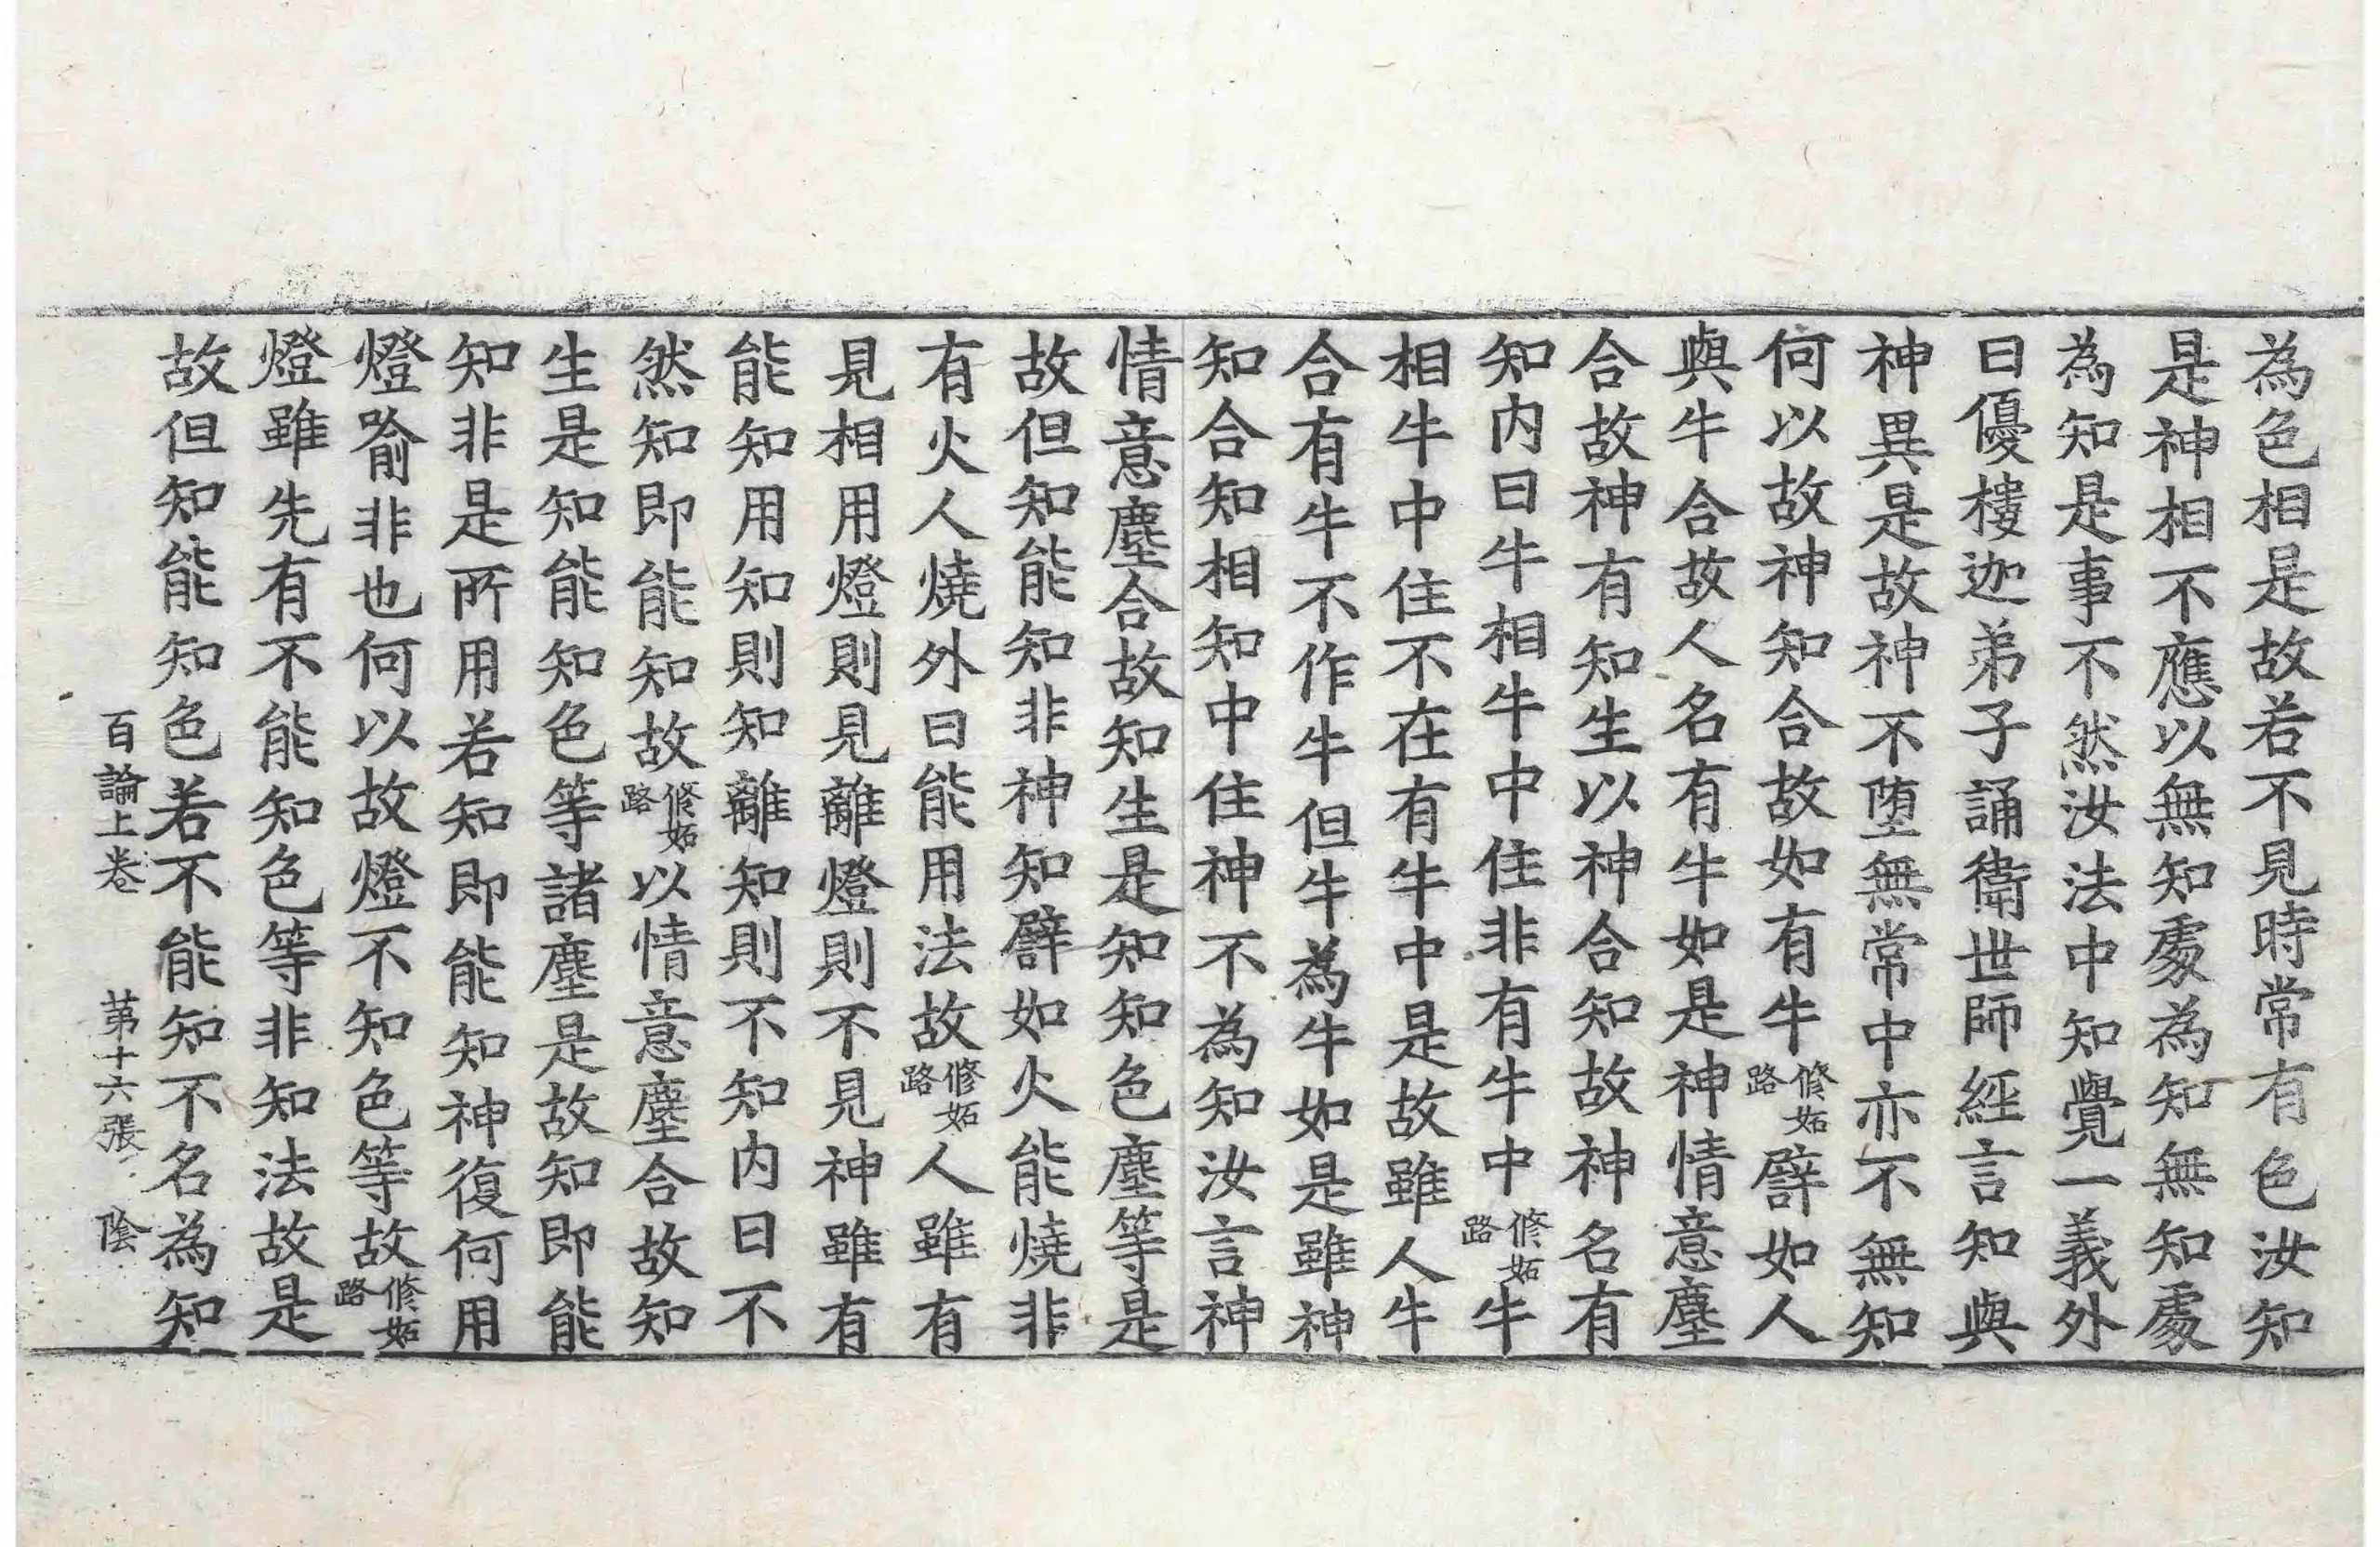 為色相是故若不見時常有色汝知
是神相不應以無知處為知無知處
為知是事不然汝法中知覺一義外
曰優樓迦弟子誦衛世師經言知與
神異是故神不墮無常中亦不無知
何以故神知合故如有牛修妬路譬如人
與牛合故人名有牛如是神情意塵
合故神有知生以神合知故神名有
知内曰牛相牛中住非有牛中修妬路牛
相牛中住不在有牛中是故雖人牛
合有牛不作牛但牛為牛如是雖神
知合知相知中住神不為知汝言神
情意塵合故知生是知知色塵等是
故但知能知非神知譬如火能燒非
有火人燒外曰能用法故修妬路人雖有
見相用燈則見離燈則不見神雖有
能知用知則知離知則不知内曰不
然知即能知故修妬路以情意塵合故知
生是知能知色等諸塵是故知即能
知非是所用若知即能知神復何用
燈喻非也何以故燈不知色等故修妬路
燈雖先有不能知色等非知法故是
故但知能知色若不能知不名為知
百論上卷 苐十六張 陰